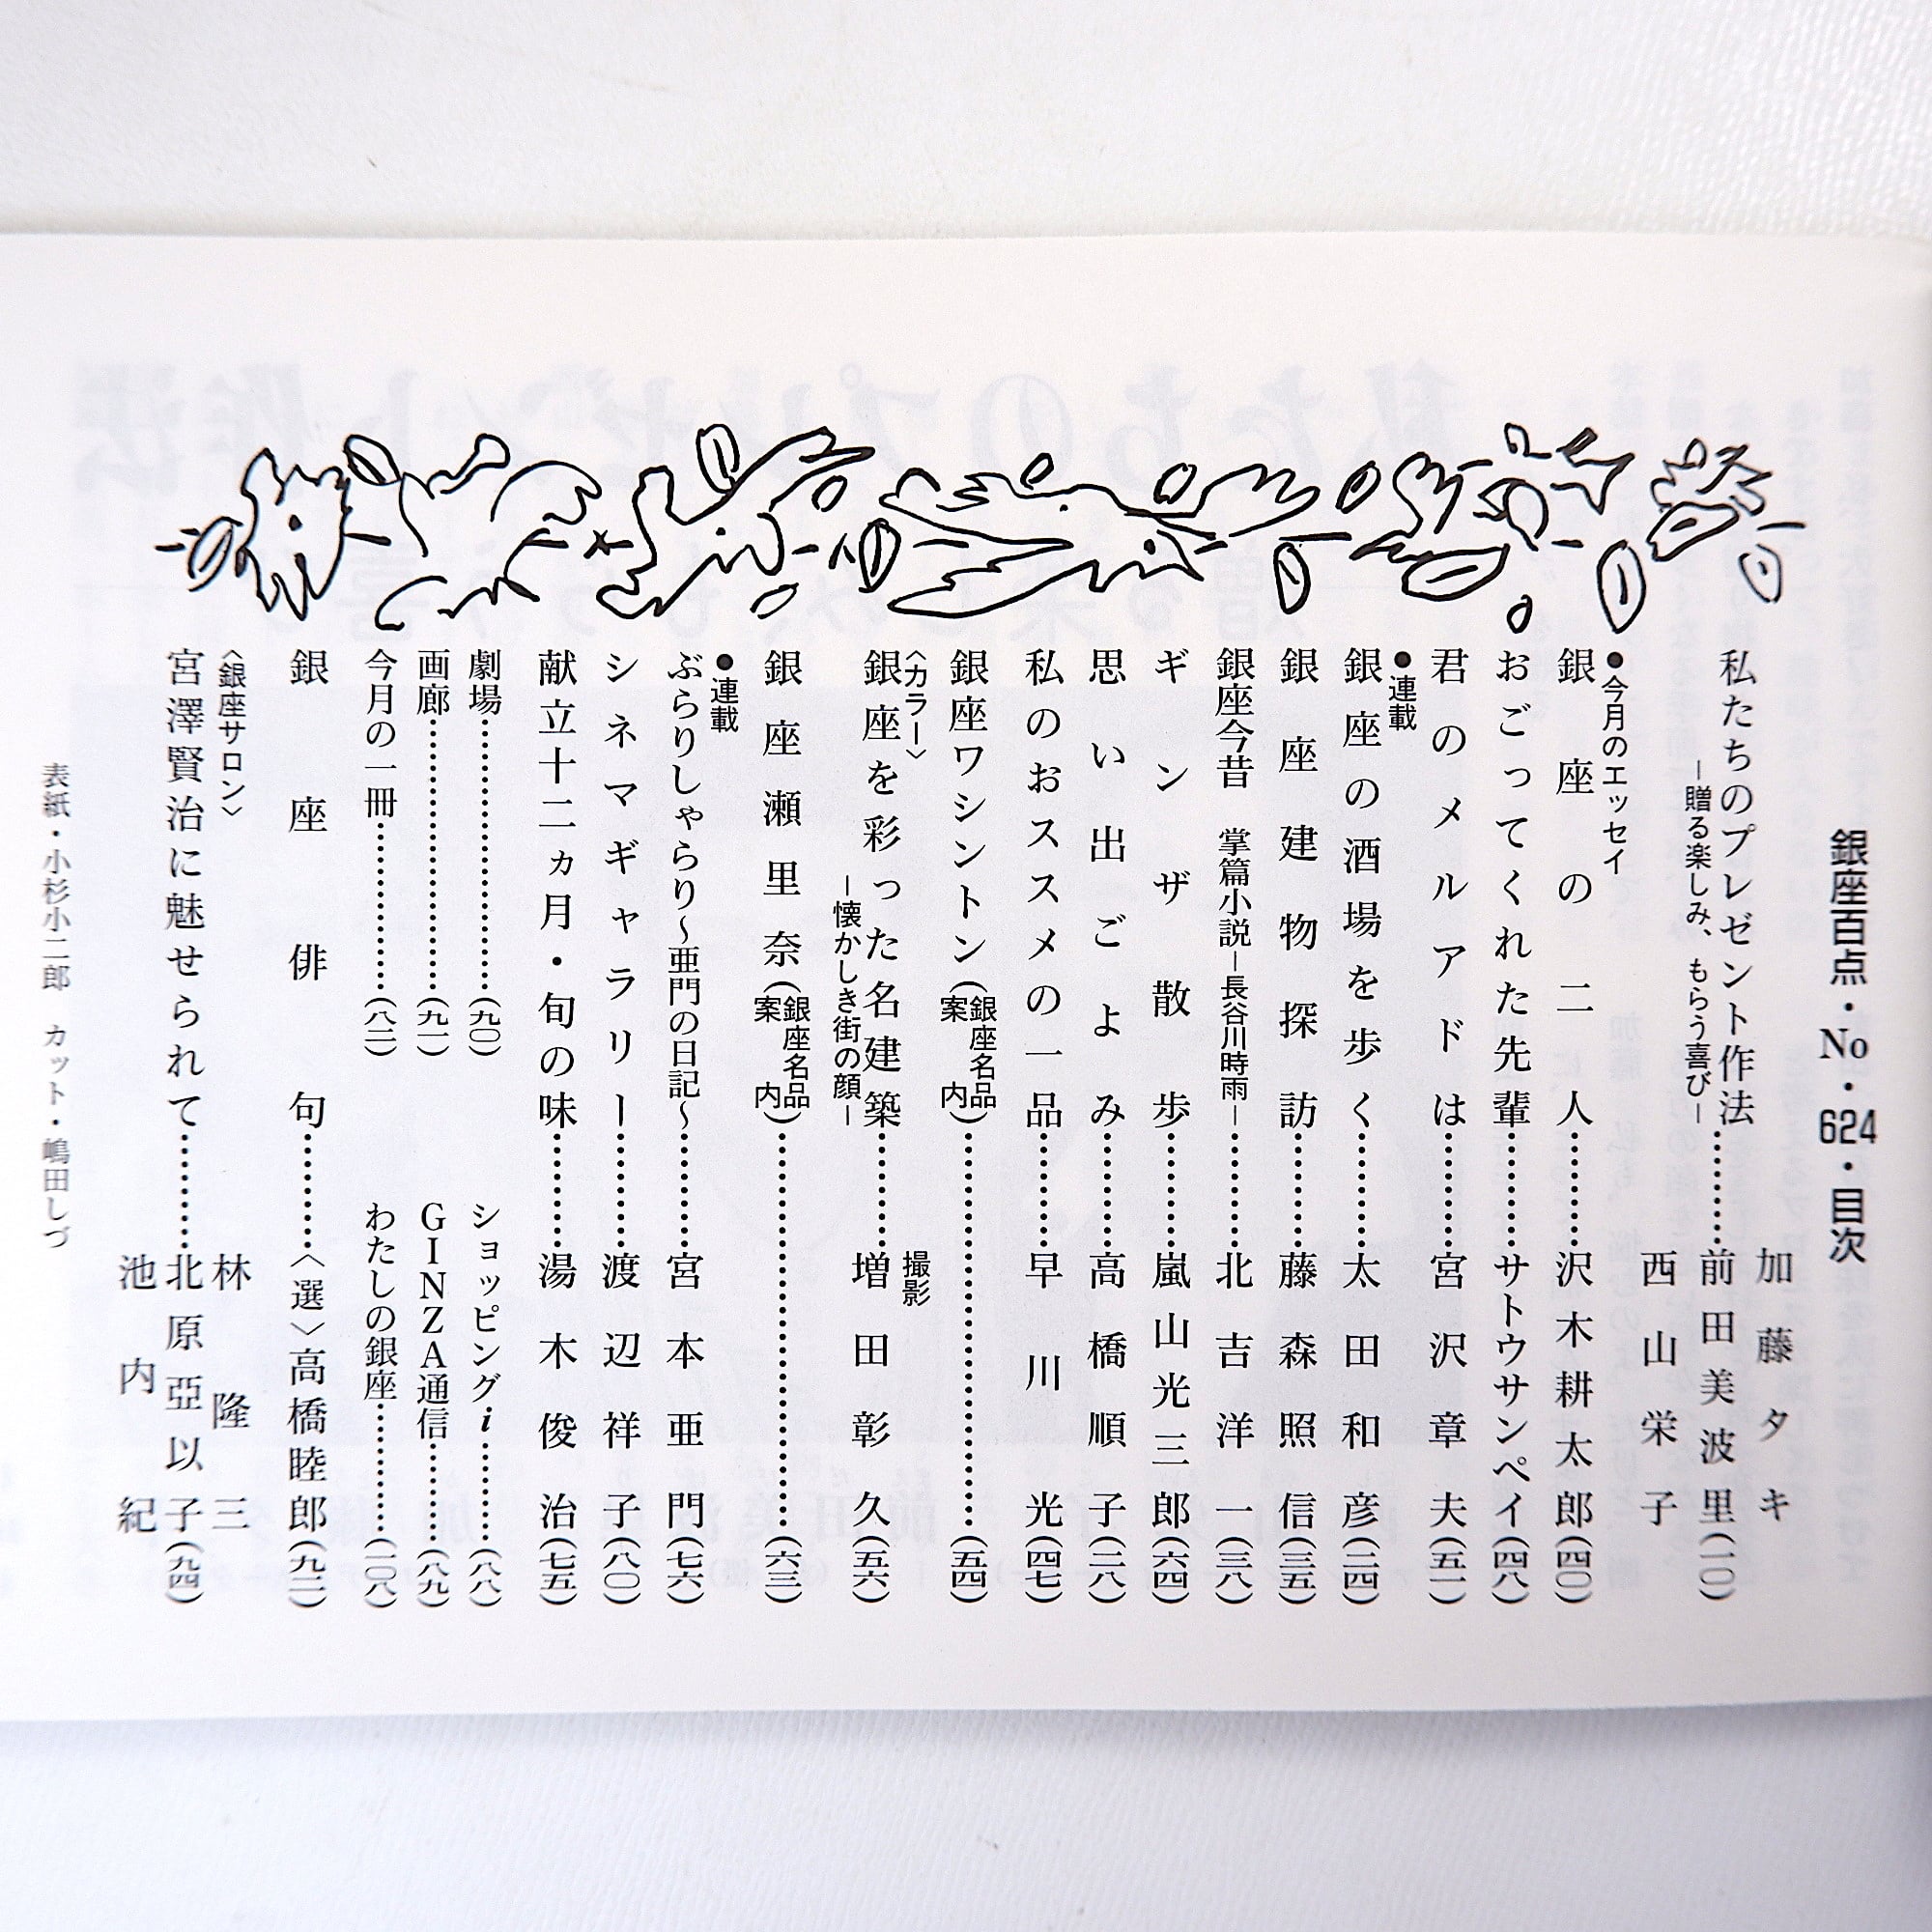 銀座百点・No・624・目次
私たちのプレゼント作法…………
―贈る楽しみ、もらう喜び―
加藤タキ
前田美波里(一〇)
西山栄子
●今月のエッセイ
銀座の二人…………沢木耕太郎(四〇)
おごってくれた先輩…………サトウサンペイ(四八)
君のメルアドは…………宮沢章夫(五一)
●連載
銀座の酒場を歩く…………太田和彦(二四)
銀座建物探訪…………藤森照信(三五)
銀座今昔 掌篇小説―長谷川時雨―…………北吉洋一(三八)
ギンザ散歩…………嵐山光三郎(六四)
思い出ごよみ…………高橋順子(二八)
私のおススメの一品…………早川光(四七)
銀座ワシントン(銀座名品案内)…………(五四)
〈カラー〉
銀座を彩った名建築…………撮影 増田彰久(五六)
―懐かしき街の顔―
銀座瀬里奈(銀座名品案内)…………(六三)
●連載
ぶらりしゃらり～亜門の日記～…………宮本亜門(七六)
シネマギャラリー…………渡辺祥子(八〇)
献立十二ヵ月・旬の味…………湯木俊治(七五)
劇場…………(九〇)
ショッピングi…………(八八)
画廊…………(九一)
GINZA通信…………(八九)
今月の一冊…………(八二)
わたしの銀座…………(一〇八)
銀座俳句…………〈選〉高橋睦郎(九二)
〈銀座サロン〉
宮澤賢治に魅せられて…………
林隆三
北原亞以子(九四)
池内紀
表紙・小杉小二郎 カット・嶋田しづ